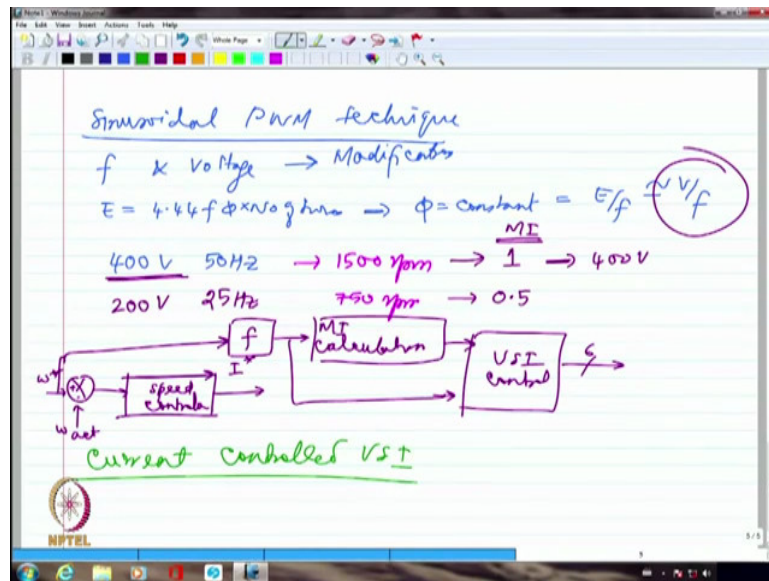 Note1 - Windows Journal
File Edit View Insert Actions Tools Help
Whole Page
B I
Sinusoidal PWM technique
f & Voltage → Modification
E = 4.44 f Φ × No of turns → Φ = constant = E/f ≈ V/f
MI
400 V 50 Hz → 1500 rpm → 1 → 400 V
200 V 25 Hz 750 rpm → 0.5
f
MI calculation
VSI control
6
ω*
ω act
speed controller
I*
Current controlled VSI
NPTEL
5/5